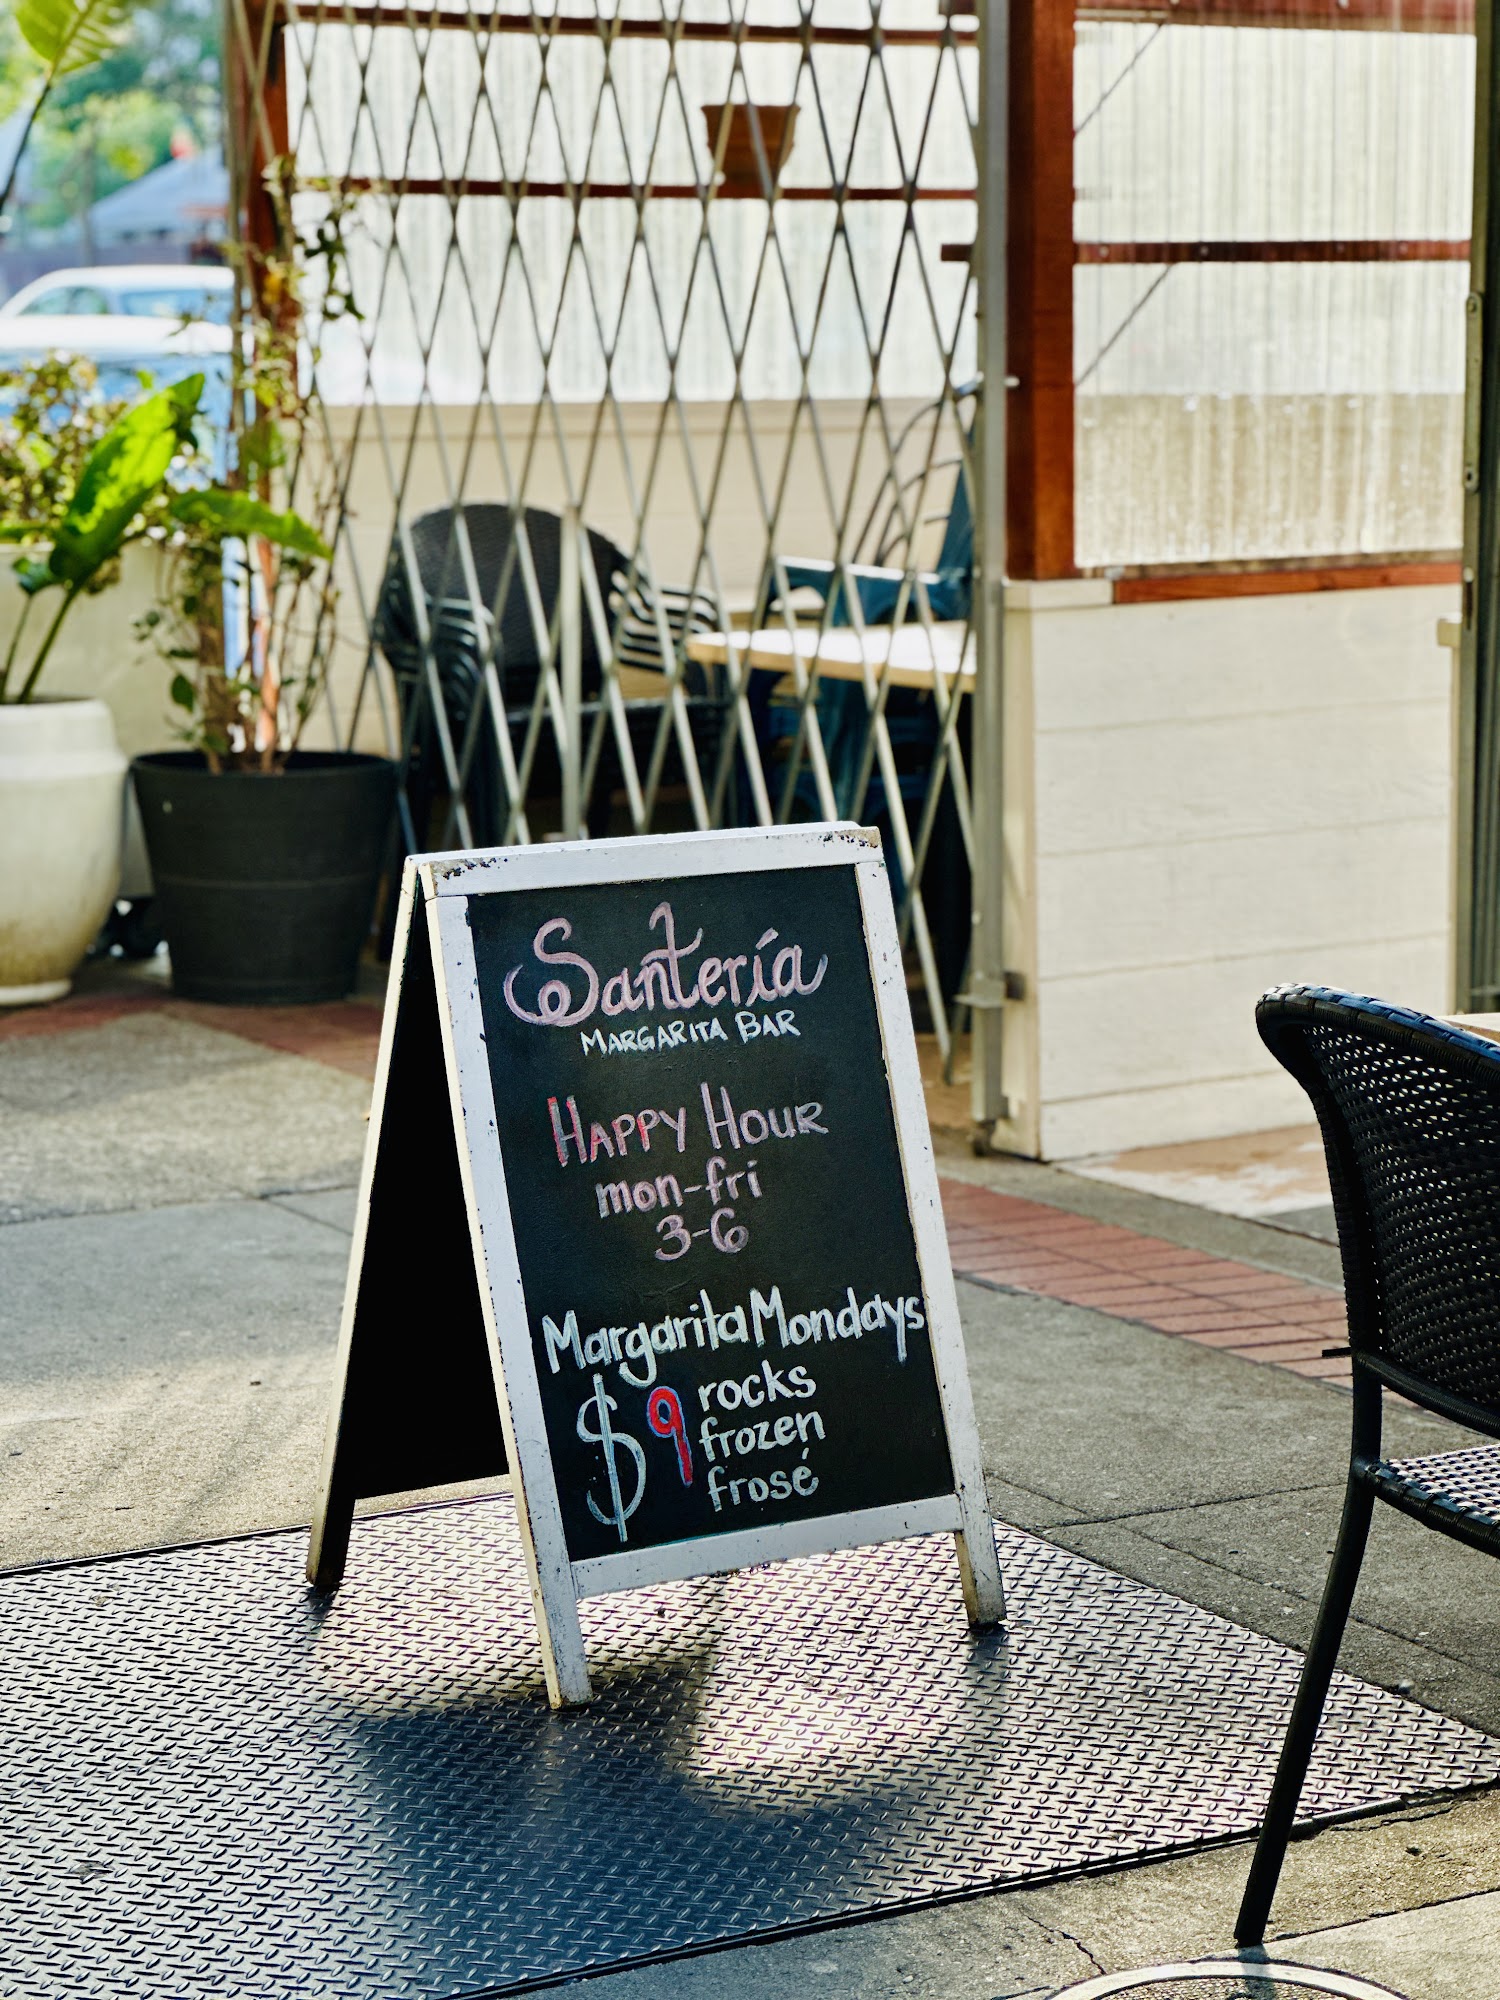 Santería
MARGARITA BAR
HAPPY HOUR
mon-fri
3-6
Margarita Mondays
$9 rocks
frozen
frosé